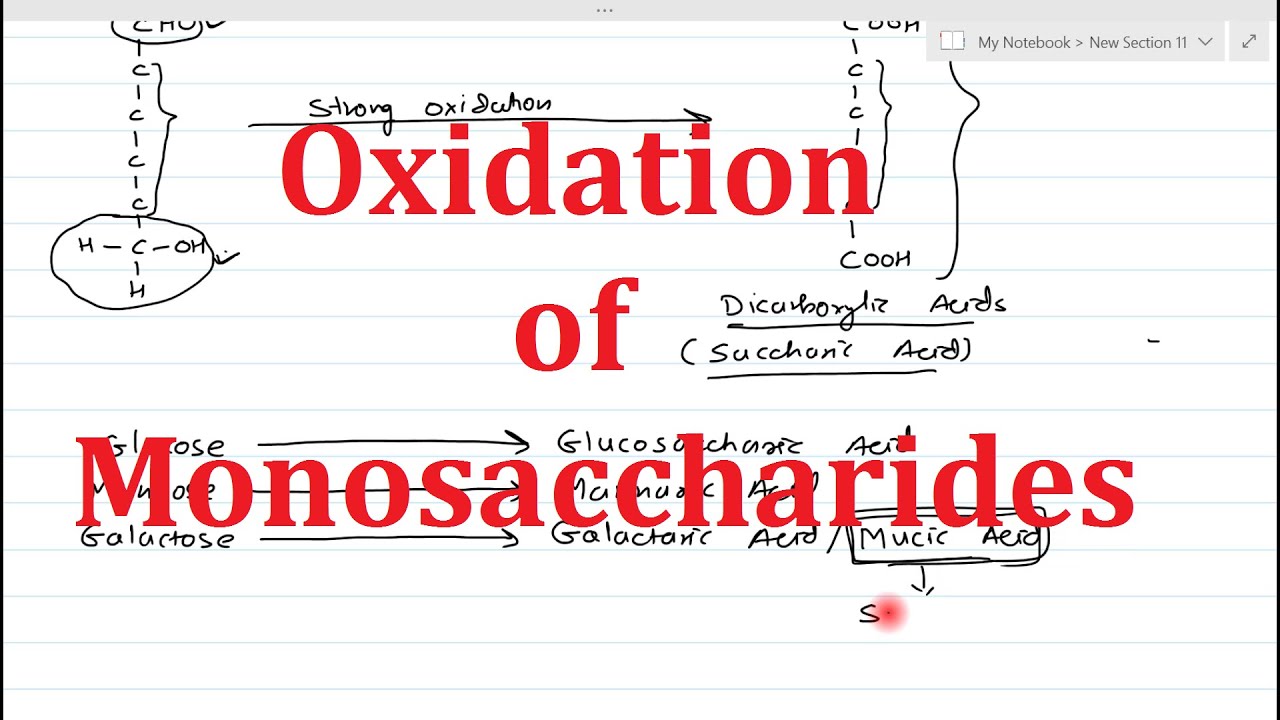 ...
CHO COOH
My Notebook > New Section 11
C C
Strong oxidation
C C
Oxidation
C
C
H — C — OH COOH
H
of
Dicarboxylic Acids
(Saccharic Acid)
Glucose Glucosaccharic Acid
Monosaccharides
Mannose Mannaric Acid
Galactose Galactaric Acid / Mucic Acid
S